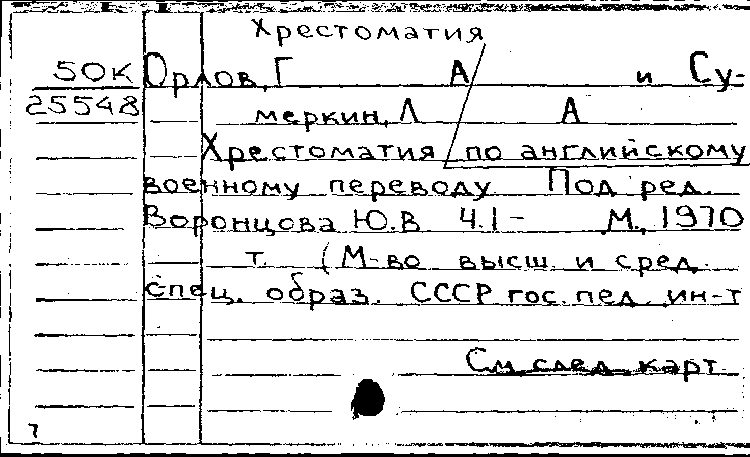 Хрестоматия
50К Орлов, Г А и Су-
25548 меркин, Л А
Хрестоматия по английскому
военному переводу Под ред.
Воронцова Ю.В Ч.1- М., 1970
т. (М-во высш и сред.
спец. образ. СССР гос. пед ин-т
См след. карт.
7